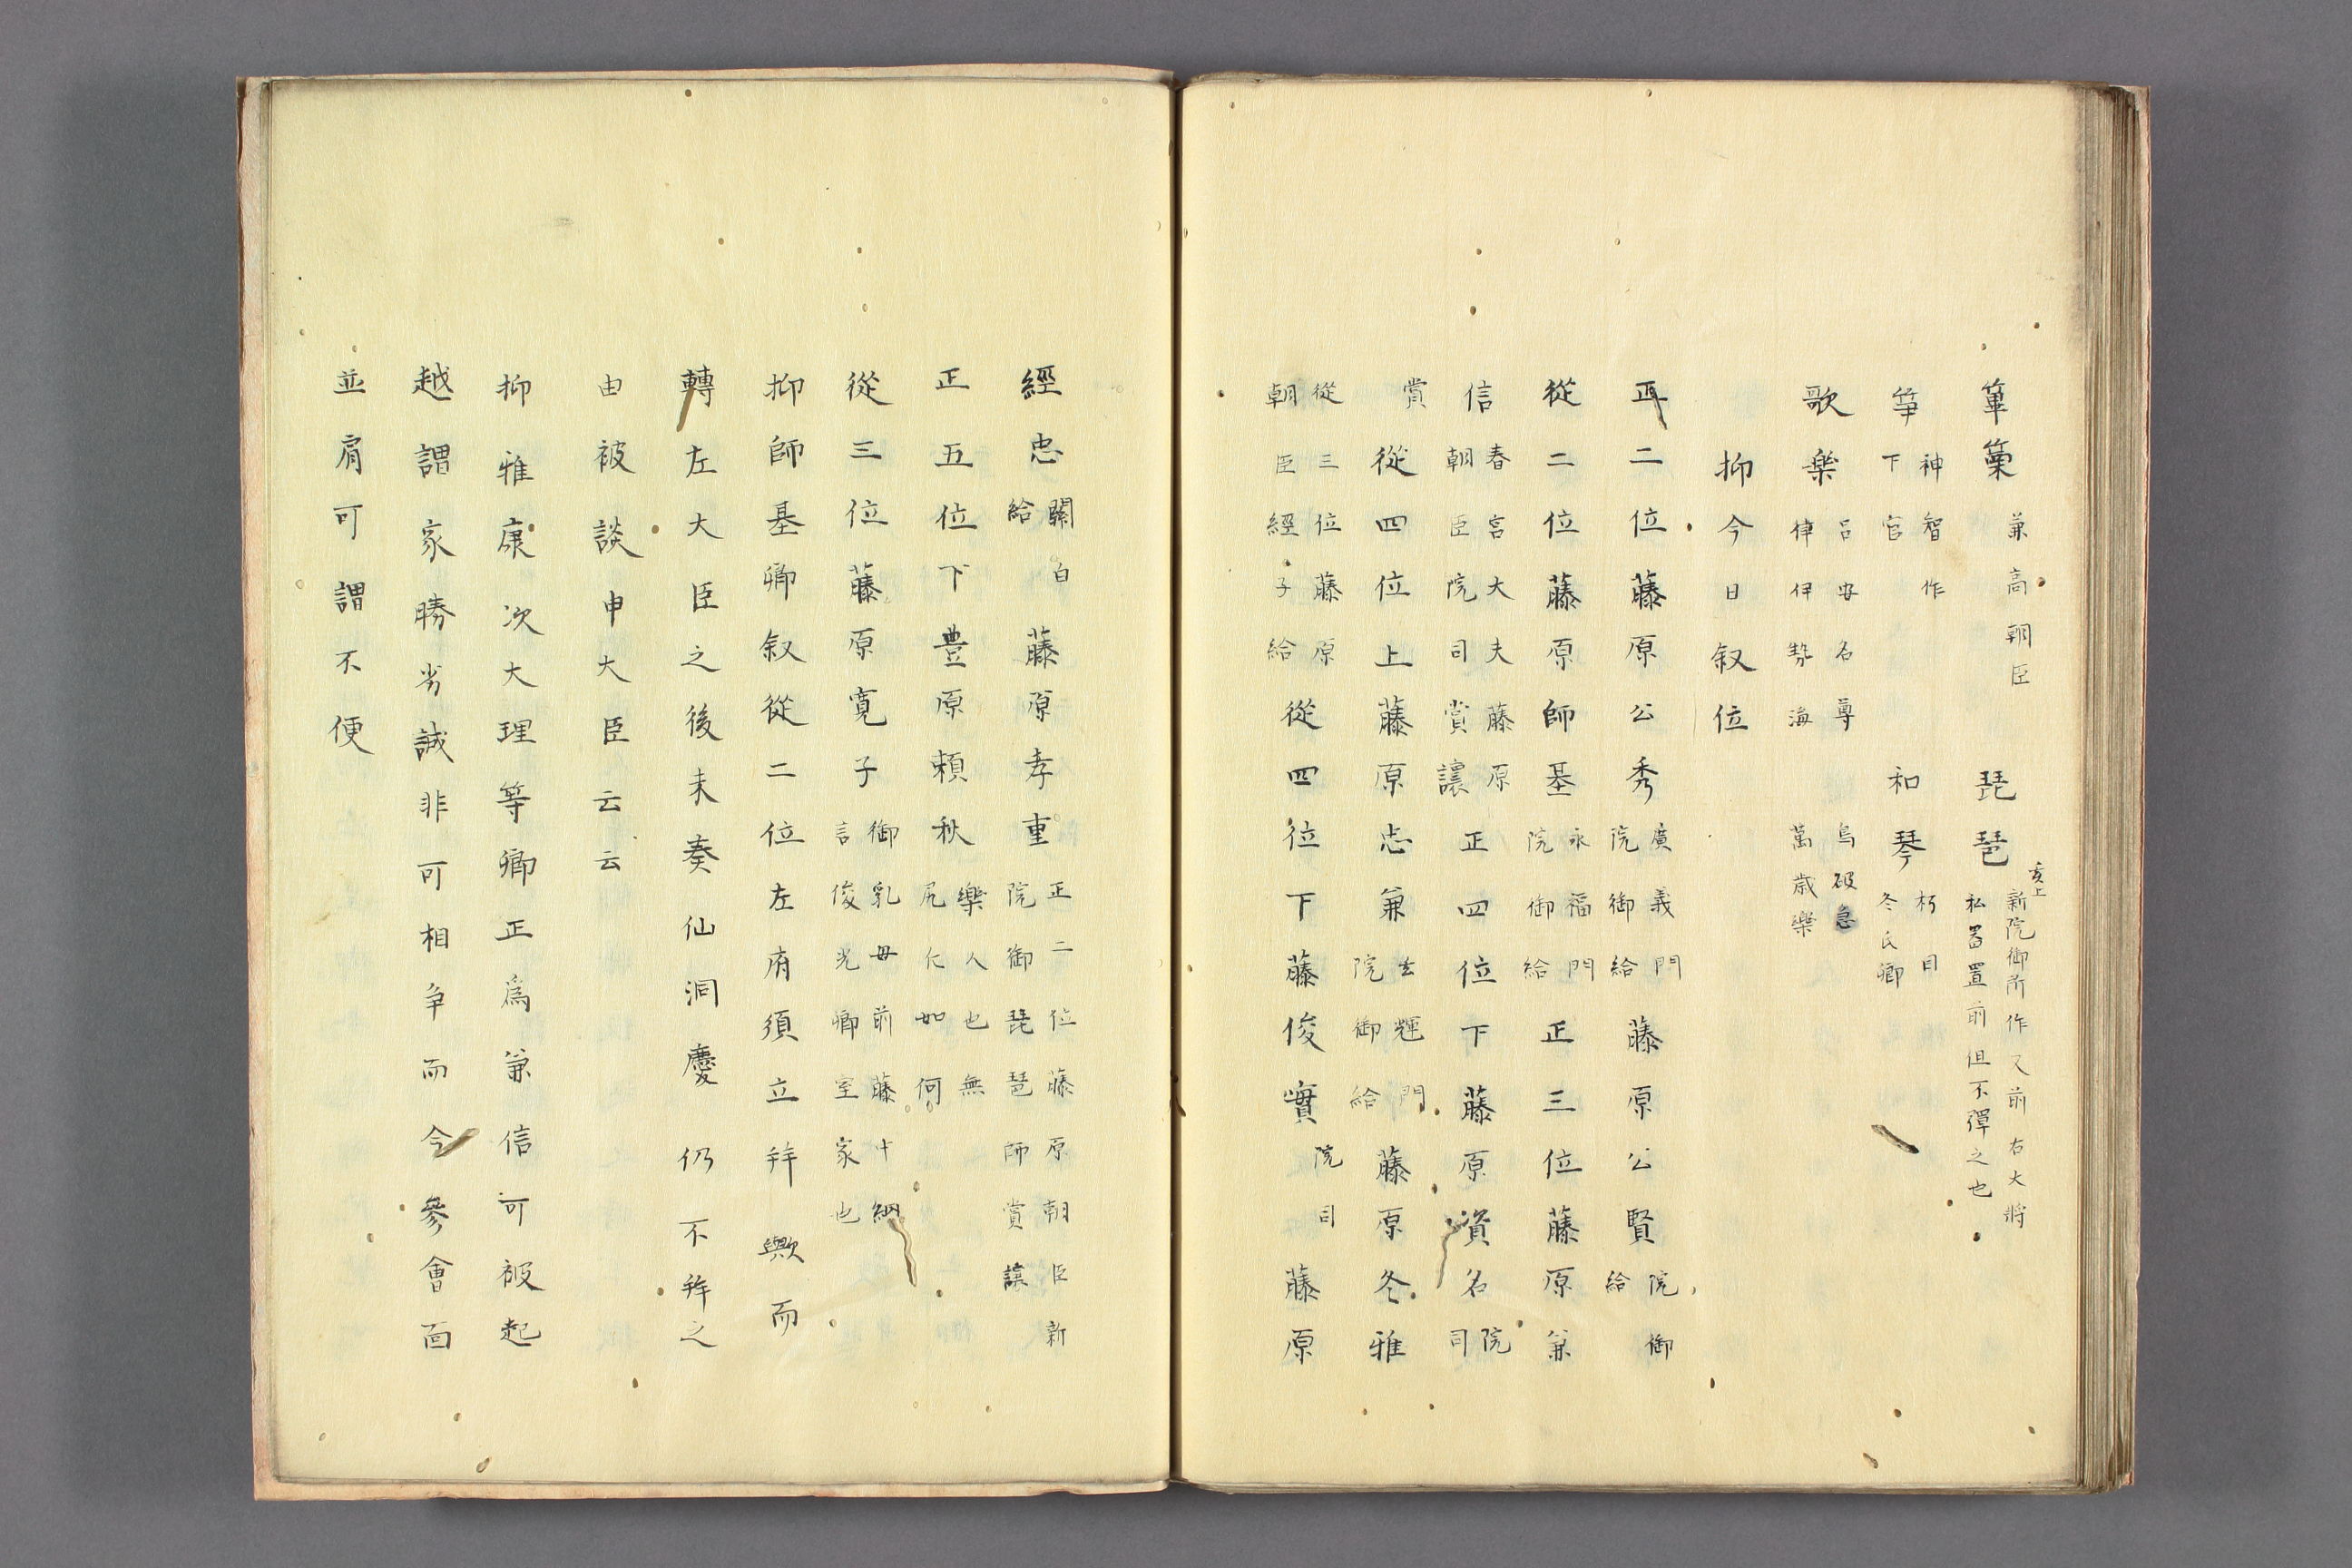 篳篥 兼高朝臣 琵琶 玄上 新院御所作 又前右大將
私置前 但不彈之也
箏 神智作 下官 和琴 朽目 冬氏卿
歌樂 呂安名尊 鳥破急
律伊勢海 萬歲樂
抑今日叙位
正二位藤原公秀 廣義門院御給 藤原公賢 院御給
從二位藤原師基 永福門院御給 正三位藤原兼
信 春宮大夫藤原朝臣院司賞讓 正四位下藤原資名 院司
賞 從四位上藤原忠兼 玄輝門院御給 藤原冬雅
從三位藤原朝臣經子給 從四位下藤原俊實 院司 藤原
經忠 關白給 藤原孝重 正二位藤原朝臣新院御琵琶師賞讓
正五位下豊原頼秋 樂人也無尻仁如何
從三位藤原寬子 御乳母前藤中納言俊光卿室家也
抑師基卿叙從二位左府須立拜歟而
轉左大臣之後未奏仙洞慶仍不拜之
由被談申大臣云云
抑雅康次大理等卿正爲兼信可被起
越謂家勝劣誠非可相争而今參會面
並肩可謂不便